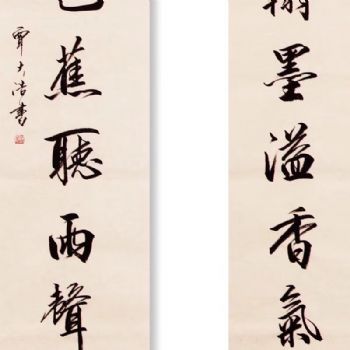 墨溢香氣
蕉聽雨聲
大浩書